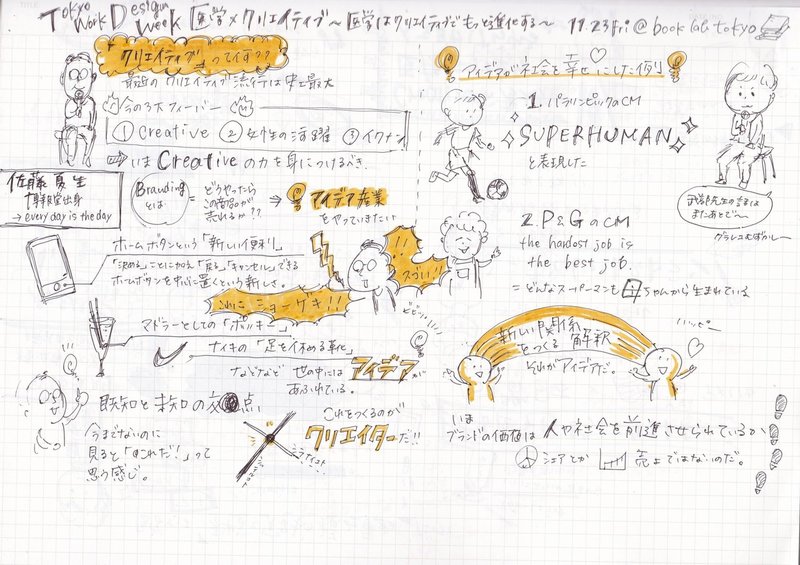 Tokyo Work Design Week 医学×クリエイティブ～医学はクリエイティブでもっと進化する～ 11.23 fri @ book lab tokyo
クリエイティブって何??
最近のクリエイティブ流行は史上最大
今の3大フィーバー
① Creative ② 女性の活躍 ③ イクメン
いまCreativeの力を身につけるべき.
佐藤夏生
博報堂出身
→ every day is the day
Brandingとは
= どうやったら
この商品が
売れるか??
⇒ アイデア産業
をやっていきたい
ホームボタンという「新しい便利」
「決める」ことに加え「戻る」「キャンセル」できる
ホームボタンを中心に置くという新しさ。
これにショーゲキ!!
!!
スゴい!!
マドラーとしての「ポッキー」
ナイキの「足を休める革化」
などなど 世の中には
アイデアが
あふれている。
既知と未知の交点
今までないのに
見ると「これだ!」って
思う感じ。
これをつくるのが
クリエイターだ!!
アイデアが社会を幸せにした例
1. パラリンピックのCM
SUPERHUMAN
と表現した
武部先生の話は
またあとで～
グラレコむずかしー
2. P&GのCM
the hardest job is
the best job.
= どんなスーパーマンも母ちゃんから生まれている
ハッピー
新しい関係
をつくる解釈
それがアイデアだ。
いま
ブランドの価値は 人や社会を前進させられているか
シェアとか 売上ではないのだ。